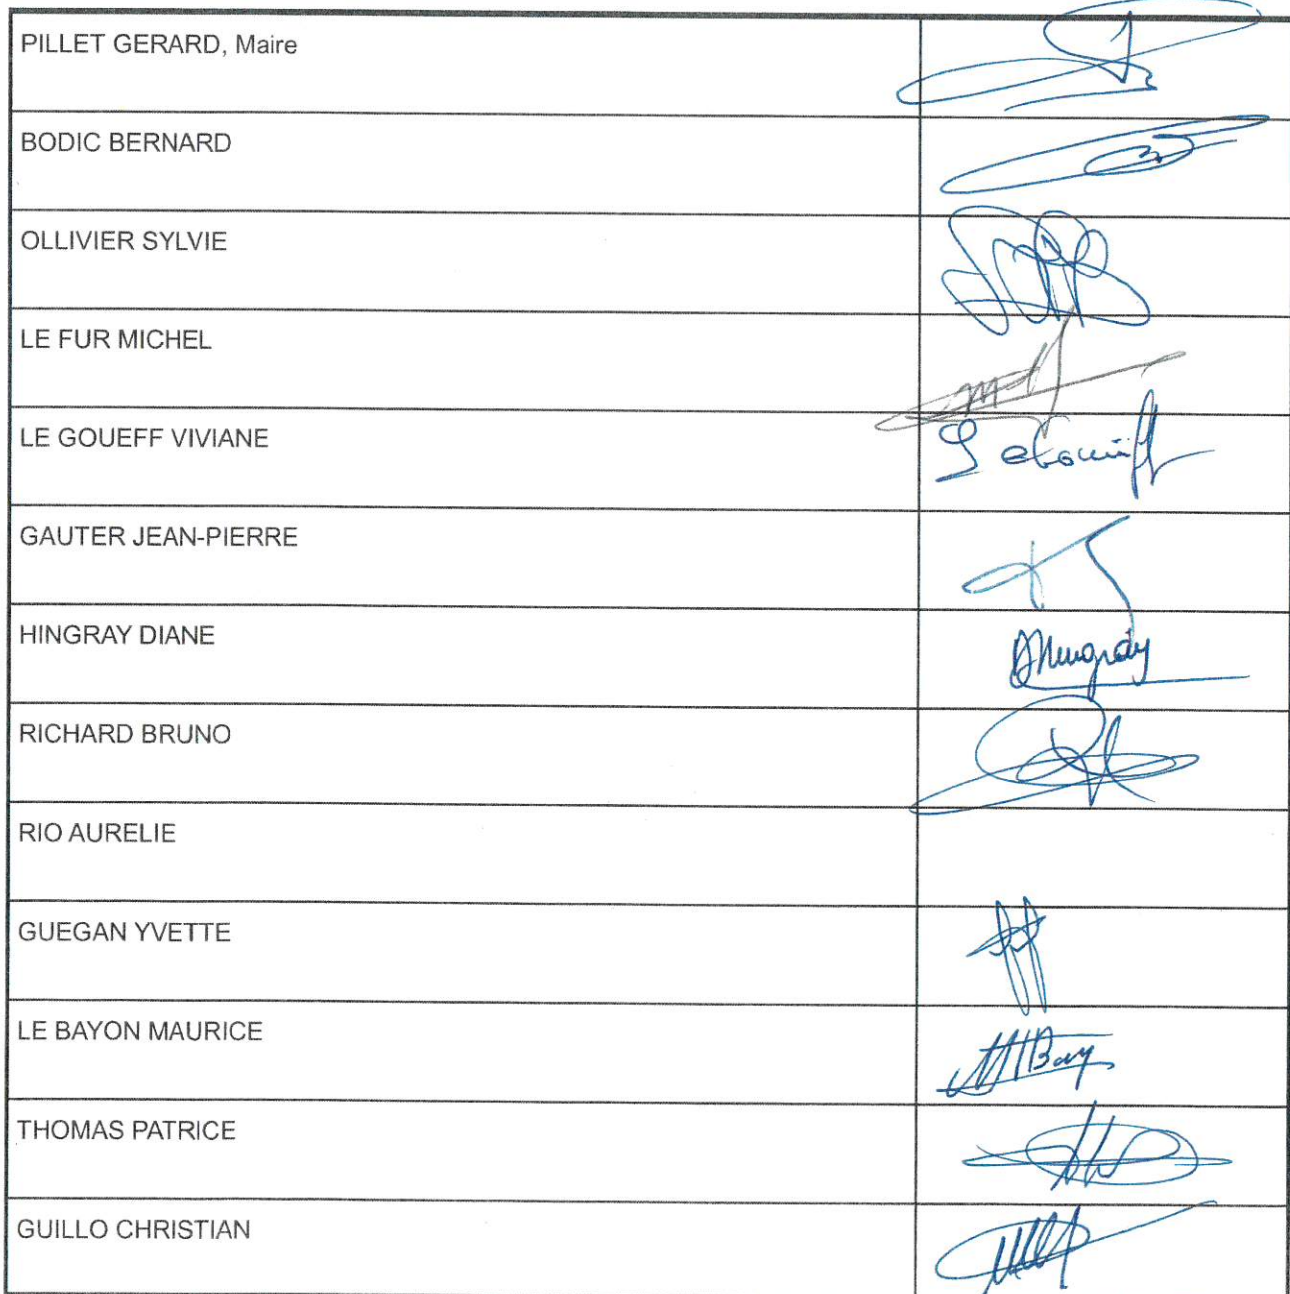 PILLET GERARD, Maire
BODIC BERNARD
OLLIVIER SYLVIE
LE FUR MICHEL
LE GOUEFF VIVIANE
GAUTER JEAN-PIERRE
HINGRAY DIANE
RICHARD BRUNO
RIO AURELIE
GUEGAN YVETTE
LE BAYON MAURICE
THOMAS PATRICE
GUILLO CHRISTIAN